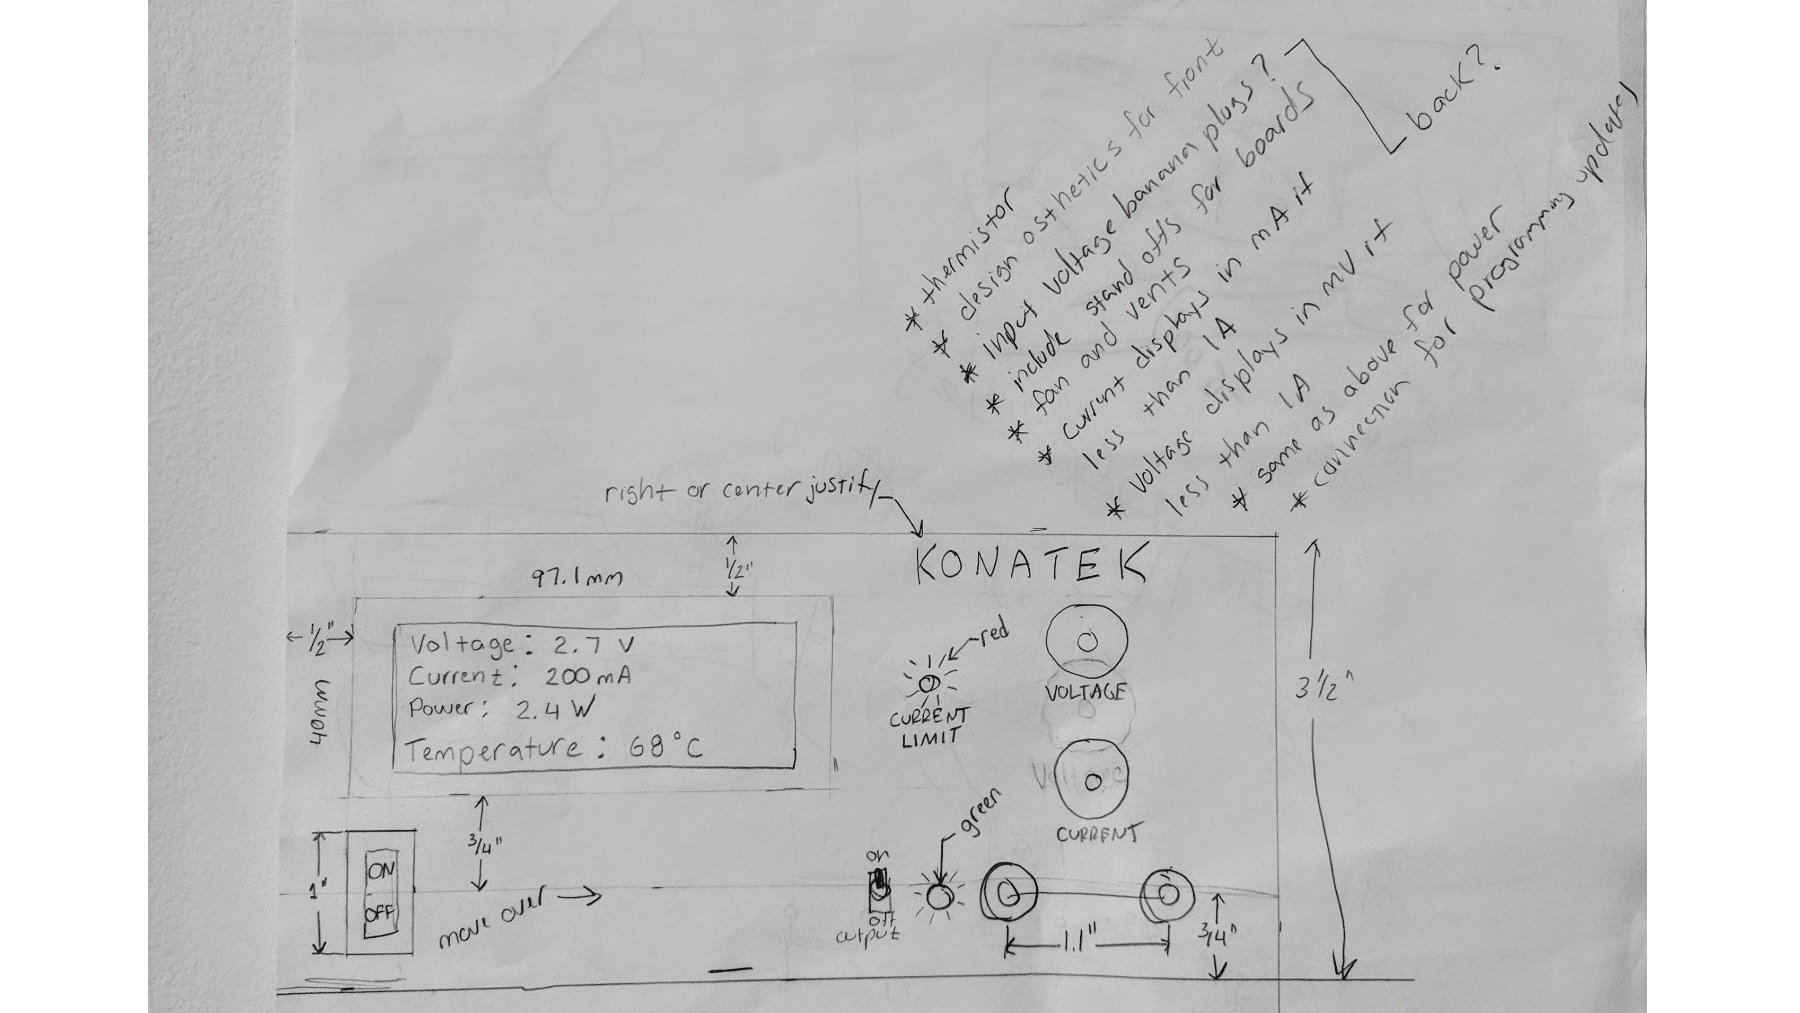 * thermistor
* design osthetics for front
* input voltage banana plugs?
back?
* include stand offs for boards
* fan and vents
* current displays in mA if
less than 1A
* voltage displays in mV if
less than 1A
* same as above for power
* connection for programming updates
right or center justify
KONATEK
1/2"
97.1mm
1/2"
40mm
Voltage: 2.7 V
Current: 200mA
Power: 2.4 W
Temperature: 68°C
red
CURRENT
LIMIT
VOLTAGE
Voltage
CURRENT
3 1/2"
3/4"
1"
ON
OFF
move over
on
off
output
green
1.1"
3/4"